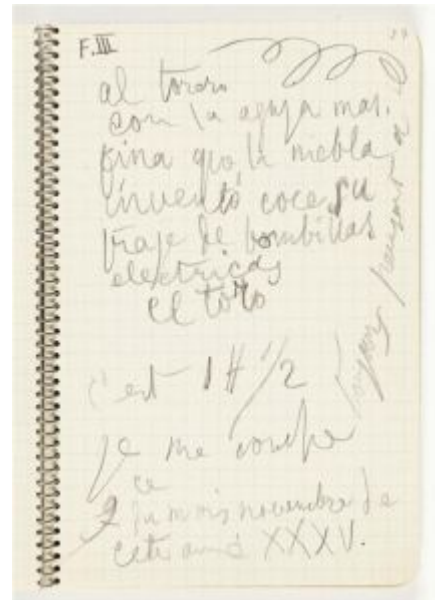 F.III
al torero
con la aguja mas
fina que la niebla
inventó coce su
traje de bombillas
electricas
el toro
c'est 1 H 1/2
je me couche
ce
du mois novembre de
cette année XXXV.